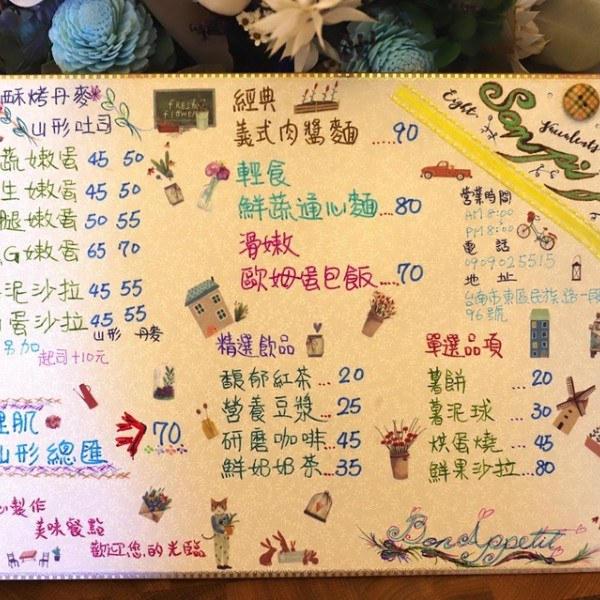 酥烤丹麥
山形吐司
蔬嫩蛋 45 50
生嫩蛋 45 50
腿嫩蛋 50 55
G嫩蛋 65 70
泥沙拉 45 55
蛋沙拉 45 55
山形 丹麥
另加
起司+10元
理肌
山形總匯
70
心製作
美味餐點
歡迎您的光臨
FRESH
FLOWERS
經典
義式肉醬麵 ..... 90
輕食
鮮蔬通心麵 ..... 80
滑嫩
歐姆蛋包飯 ..... 70
精選飲品
馥郁紅茶 ... 20
營養豆漿 ... 25
研磨咖啡 ... 45
鮮奶奶茶 ... 35
Eight
營業時間
AM 8:00
PM 8:00
電話
0909025515
地址
台南市東區民族路一段
96號
單選品項
薯餅 ... 20
薯泥球 ... 30
烘蛋燒 ... 45
鮮果沙拉 ... 80
Bon Appetit